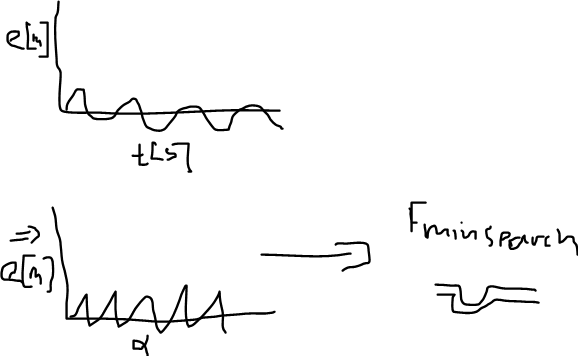 e[m]
t[s]
⇒
e[m]
α
Fminsearch